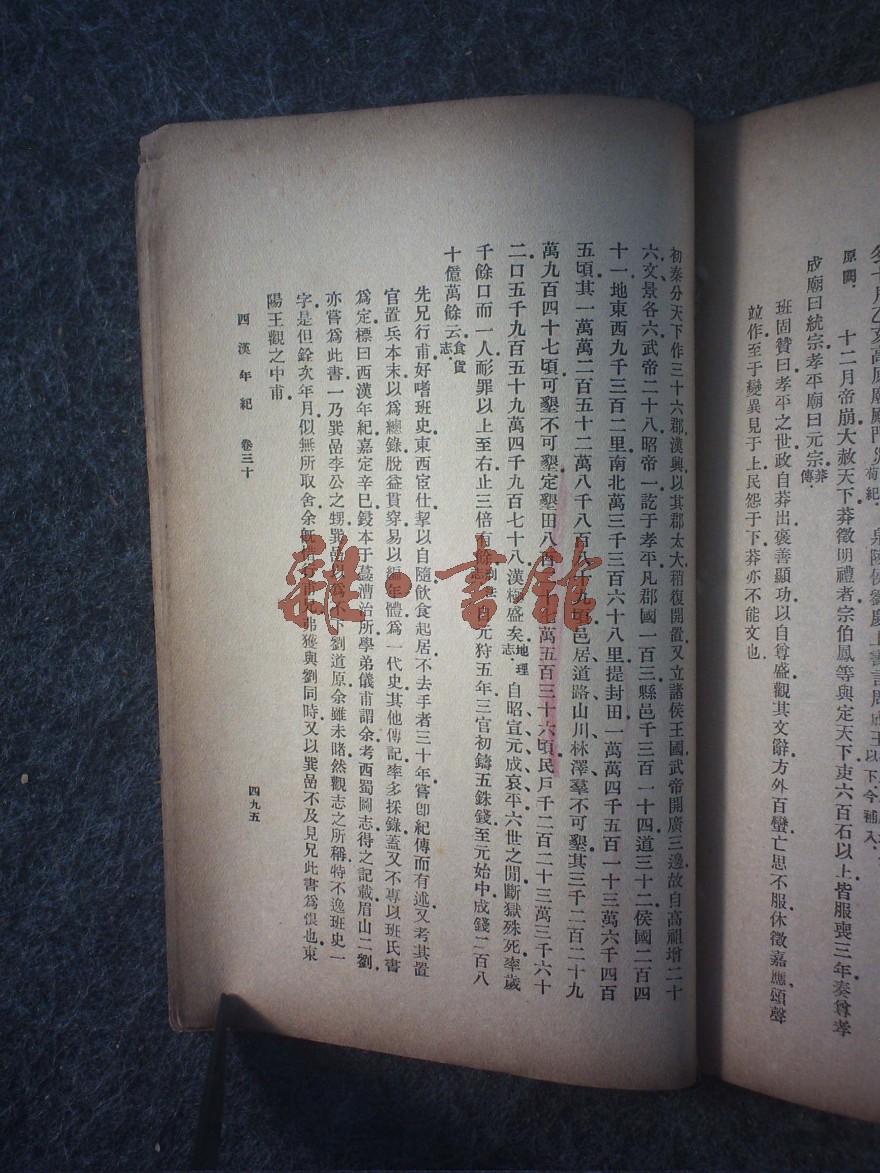 乙亥高原廟殿門災荀紀.泉陵侯劉慶上書言周成王以下.今補入.
原闕.十二月帝崩.大赦天下.莽徵明禮者宗伯鳳等.與定天下吏六百石以上皆服喪三年.奏尊孝
成廟曰統宗.孝平廟曰元宗.莽傳.
班固贊曰.孝平之世.政自莽出.褒善顯功.以自尊盛.觀其文辭.方外百蠻.亡思不服.休徵嘉應.頌聲
竝作.至于變異見于上.民怨于下.莽亦不能文也.
初秦分天下作三十六郡.漢興以其郡太大.稍復開置.又立諸侯王國.武帝開廣三邊.故自高祖增二十
六.文景各六.武帝二十八.昭帝一.訖于孝平.凡郡國一百三.縣邑千三百一十四.道三十二.侯國二百四
十一.地東西九千三百二里.南北萬三千三百六十八里.提封田一萬萬四千五百一十三萬六千四百
五頃.其一萬萬二百五十二萬八千八百八十九頃.邑居、道路、山川、林澤.羣不可墾.其三千二百二十九
萬九百四十七頃.可墾不可墾.定墾田八百二十七萬五百三十六頃.民戶千二百二十三萬三千六十
二.口五千九百五十九萬四千九百七十八.漢極盛矣.地理志.自昭、宣、元、成、哀、平六世之閒.斷獄殊死.率歲
千餘口而一人.耏罪以上至右止.三倍有餘.刑法志.自元狩五年.三官初鑄五銖錢.至元始中.成錢二百八
十億萬餘云.食貨志.
先兄行甫.好嗜班史.東西宦仕.挈以自隨.飲食起居.不去手者三十年.嘗卽紀傳而有述.又考其置
官置兵本末.以爲總錄.脫益貫穿.易以編年體.爲一代史.其他傳記.率多採錄.蓋又不專以班氏書
爲定.標曰西漢年紀.嘉定辛巳.鋟本于蘷漕治所.學弟儀甫.謂余考西蜀圖志.得之記載.眉山二劉.
亦嘗爲此書.一乃巽嵒李公之甥.巽嵒以爲不 劉道原.余雖未睹.然觀志之所稱.特不逸班史一
字.是但銓次年月.似無所取舍.余 行甫兄弗獲與劉同時.又以巽嵒不及見兄此書爲恨也.東
陽王觀之中甫.
西漢年紀 卷三十
四九五
雜·書館